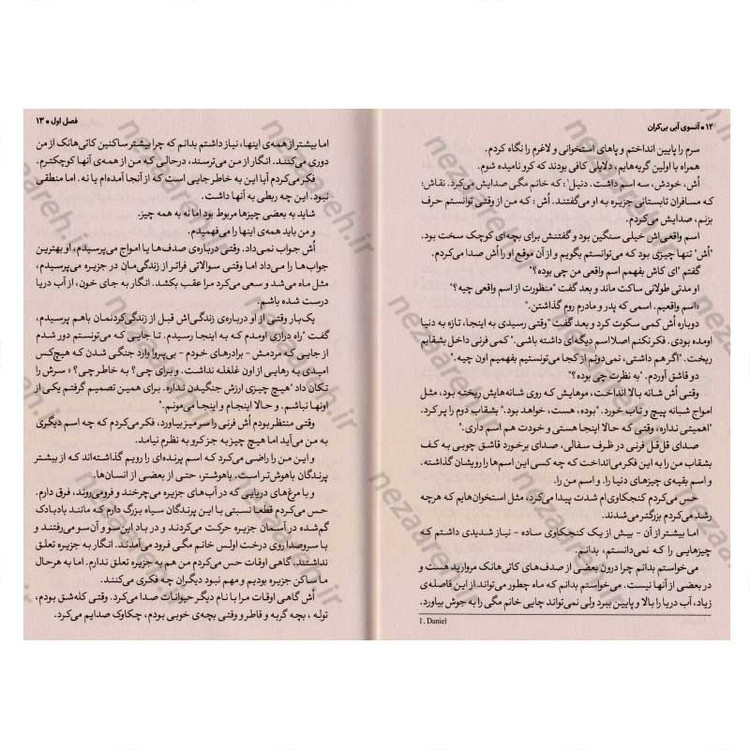 ۱۲ • آنسوی آبی بی‌کران
سرم را پایین انداختم و پاهای استخوانی و لاغرم را نگاه کردم.
همراه با اولین گریه‌هایم، دلایلی کافی بودند که کرو نامیده شوم.
اُش، خودش، سه اسم داشت. دنیل¹: که خانم مگی صدایش می‌کرد. نقاش:
که مسافران تابستانی جزیره به او می‌گفتند. اُش: که من از وقتی توانستم حرف
بزنم، صدایش می‌کردم.
اسم واقعی‌اش خیلی سنگین بود و گفتنش برای بچه‌ای کوچک سخت بود.
"اُش" تنها چیزی بود که می‌توانستم بگویم و از آن موقع او را اُش صدا می‌کردم.
گفتم "ای کاش بفهمم اسم واقعی من چی بوده؟"
او مدتی طولانی ساکت ماند و بعد گفت "منظورت از اسم واقعی چیه؟"
"اسم واقعیم. اسمی که پدر و مادرم روم گذاشتن."
دوباره اُش کمی سکوت کرد و بعد گفت "وقتی رسیدی به اینجا، تازه به دنیا
اومده بودی. فکر نکنم اصلا اسم دیگه‌ای داشته باشی." کمی فرنی داخل بشقابم
ریخت. "اگر هم داشتی، نمی‌دونم از کجا می‌تونستیم بفهمیم اون چیه."
دو قاشق آوردم. "به نظرت چی بوده؟"
وقتی اُش شانه بالا انداخت، موهایش که روی شانه‌هایش ریخته بود، مثل
امواج شبانه پیچ و تاب خورد. "بوده، هست، خواهد بود." بشقاب دوم را پر کرد.
"اهمیتی نداره، وقتی که حالا اینجا هستی و خودت هم اسم داری."
صدای قل‌قل فرنی در ظرف سفالی، صدای برخورد قاشق چوبی به کف
بشقاب من را به این فکر می‌انداخت که چه کسی این اسم‌ها را رویشان گذاشته.
و اسم بقیه‌ی چیزهای دنیا را. و اسم من را.
حس می‌کردم کنجکاوی‌ام شدت پیدا می‌کرد، مثل استخوان‌هایم که هرچه
رشد می‌کردم بزرگتر می‌شدند.
اما بیشتر از آن - بیش از یک کنجکاوی ساده - نیاز شدیدی داشتم که
چیزهایی را که نمی‌دانستم، بدانم.
می‌خواستم بدانم چرا درون بعضی از صدف‌های کاتی‌هانک مروارید هست و
در بعضی از آنها نیست. می‌خواستم بدانم که ماه چطور می‌تواند از این فاصله‌ی
زیاد، آب دریا را بالا و پایین ببرد ولی نمی‌تواند چایی خانم مگی را به جوش بیاورد.
1. Daniel
فصل اول • ۱۳
اما بیشتر از همه‌ی اینها، نیاز داشتم بدانم که چرا بیشتر ساکنین کاتی‌هانک از من
دوری می‌کنند. انگار از من می‌ترسند، درحالی که من از همه‌ی آنها کوچکترم.
فکر می‌کردم آیا این به خاطر جایی است که از آنجا آمده‌ام یا نه. اما منطقی
نبود. این چه ربطی به آنها داشت.
شاید به بعضی چیزها مربوط بود اما نه به همه چیز.
و من باید همه‌ی اینها را می‌فهمیدم.
اُش جواب نمی‌داد. وقتی درباره‌ی صدف‌ها یا امواج می‌پرسیدم، او بهترین
جواب‌ها را می‌داد اما وقتی سوالاتی فراتر از زندگی‌مان در جزیره می‌پرسیدم،
مثل ماه می‌شد و سعی می‌کرد مرا عقب بکشد. انگار به جای خون، از آب دریا
درست شده باشم.
یک‌بار وقتی از او درباره‌ی زندگی‌اش قبل از زندگی‌کردنمان باهم پرسیدم،
گفت "راه درازی اومدم که به اینجا رسیدم. تا جایی که می‌تونستم دور شدم
از جایی که مردمش - برادرهای خودم - بی‌پروا وارد جنگی شدن که هیچ‌کس
امیدی به رهایی از اون غلغله نداشت. و برای چی؟ به خاطر چی؟" سرش را
تکان داد "هیچ چیزی ارزش جنگیدن نداره. برای همین تصمیم گرفتم یکی از
اونها نباشم. و حالا اینجام و اینجا می‌مونم."
وقتی منتظر بودم اُش فرنی را سر میز بیاورد، فکر می‌کردم که چه اسم دیگری
به من می‌آید اما هیچ چیز به جز کرو به نظرم نیامد.
و این من را راضی می‌کرد که اسم پرنده‌ای را رویم گذاشته‌اند که از بیشتر
پرندگان باهوش‌تر است، باهوشتر، حتی از بعضی از انسان‌ها.
و با مرغ‌های دریایی که در آب‌های جزیره می‌چرخند و فرو می‌روند، فرق دارم.
حس می‌کردم قطعا نسبتی با این پرندگان سیاه بزرگ دارم که مانند بادبادک
گم‌شده در آسمان جزیره حرکت می‌کردند و در باد این سو و آن سو می‌رفتند و
با سروصدا روی درخت لوئس خانم مگی فرود می‌آمدند. انگار به جزیره تعلق
نداشتند. گاهی اوقات حس می‌کردم من هم به جزیره تعلق ندارم. اما به هرحال
ما ساکن جزیره بودیم و مهم نبود دیگران چه فکری می‌کنند.
اُش گاهی اوقات مرا با نام دیگر حیوانات صدا می‌کرد. وقتی کله‌شق بودم،
توله، بچه گربه و قاطر و وقتی بچه‌ی خوبی بودم، چکاوک صدایم می‌کرد.
nezaareh.ir